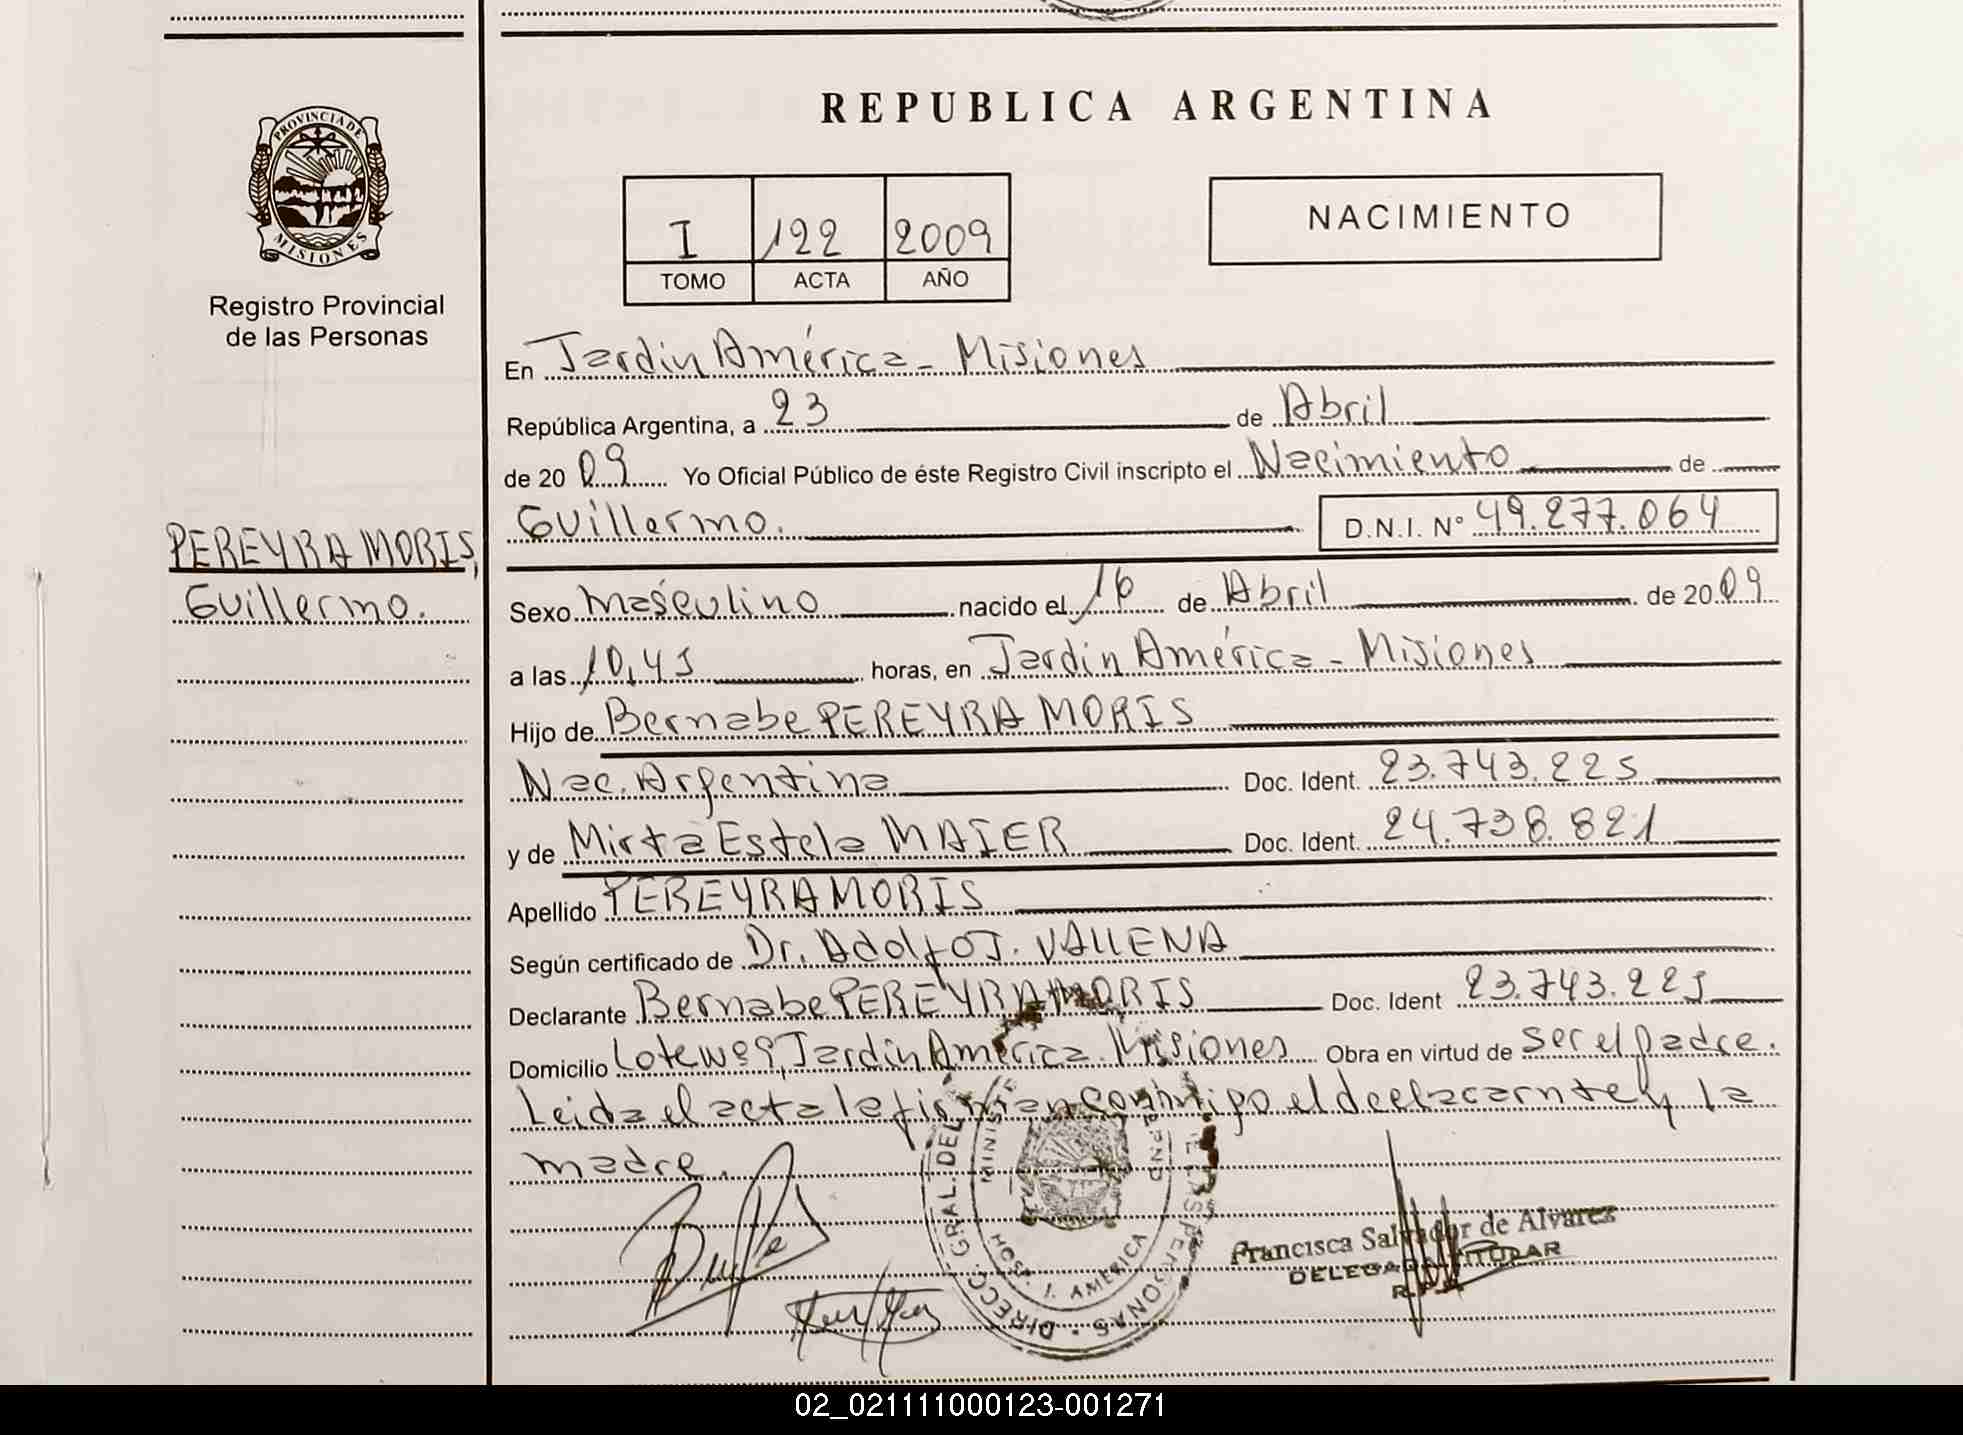 REPUBLICA ARGENTINA
PROVINCIA DE
MISIONES
Registro Provincial
de las Personas
I 122 2009
TOMO ACTA AÑO
NACIMIENTO
En Jardin América - Misiones
República Argentina, a 23 de Abril
de 2009 Yo Oficial Público de éste Registro Civil inscripto el Nacimiento de
Guillermo. D.N.I. N° 49.277.064
PEREYRA MORIS,
Guillermo.
Sexo Masculino nacido el 16 de Abril de 2009
a las 10,45 horas, en Jardin América - Misiones
Hijo de Bernabe PEREYRA MORIS
Nac. Argentina Doc. Ident. 23.743.225
y de Mirta Estela MAIER Doc. Ident. 24.738.821
Apellido PEREYRA MORIS
Según certificado de Dr. Adolfo J. VALLENA
Declarante Bernabe PEREYRA MORIS Doc. Ident 23.743.225
Domicilio Lote Jardin América. Misiones Obra en virtud de ser el padre.
Leida el acta la firman conmigo el y la
madre.
DIRECC. GRAL. DEL PERSONAS
HOSP. J. AMERICA
Francisca Salvador de Alvarez
DELEGADA TITULAR
02_021111000123-001271